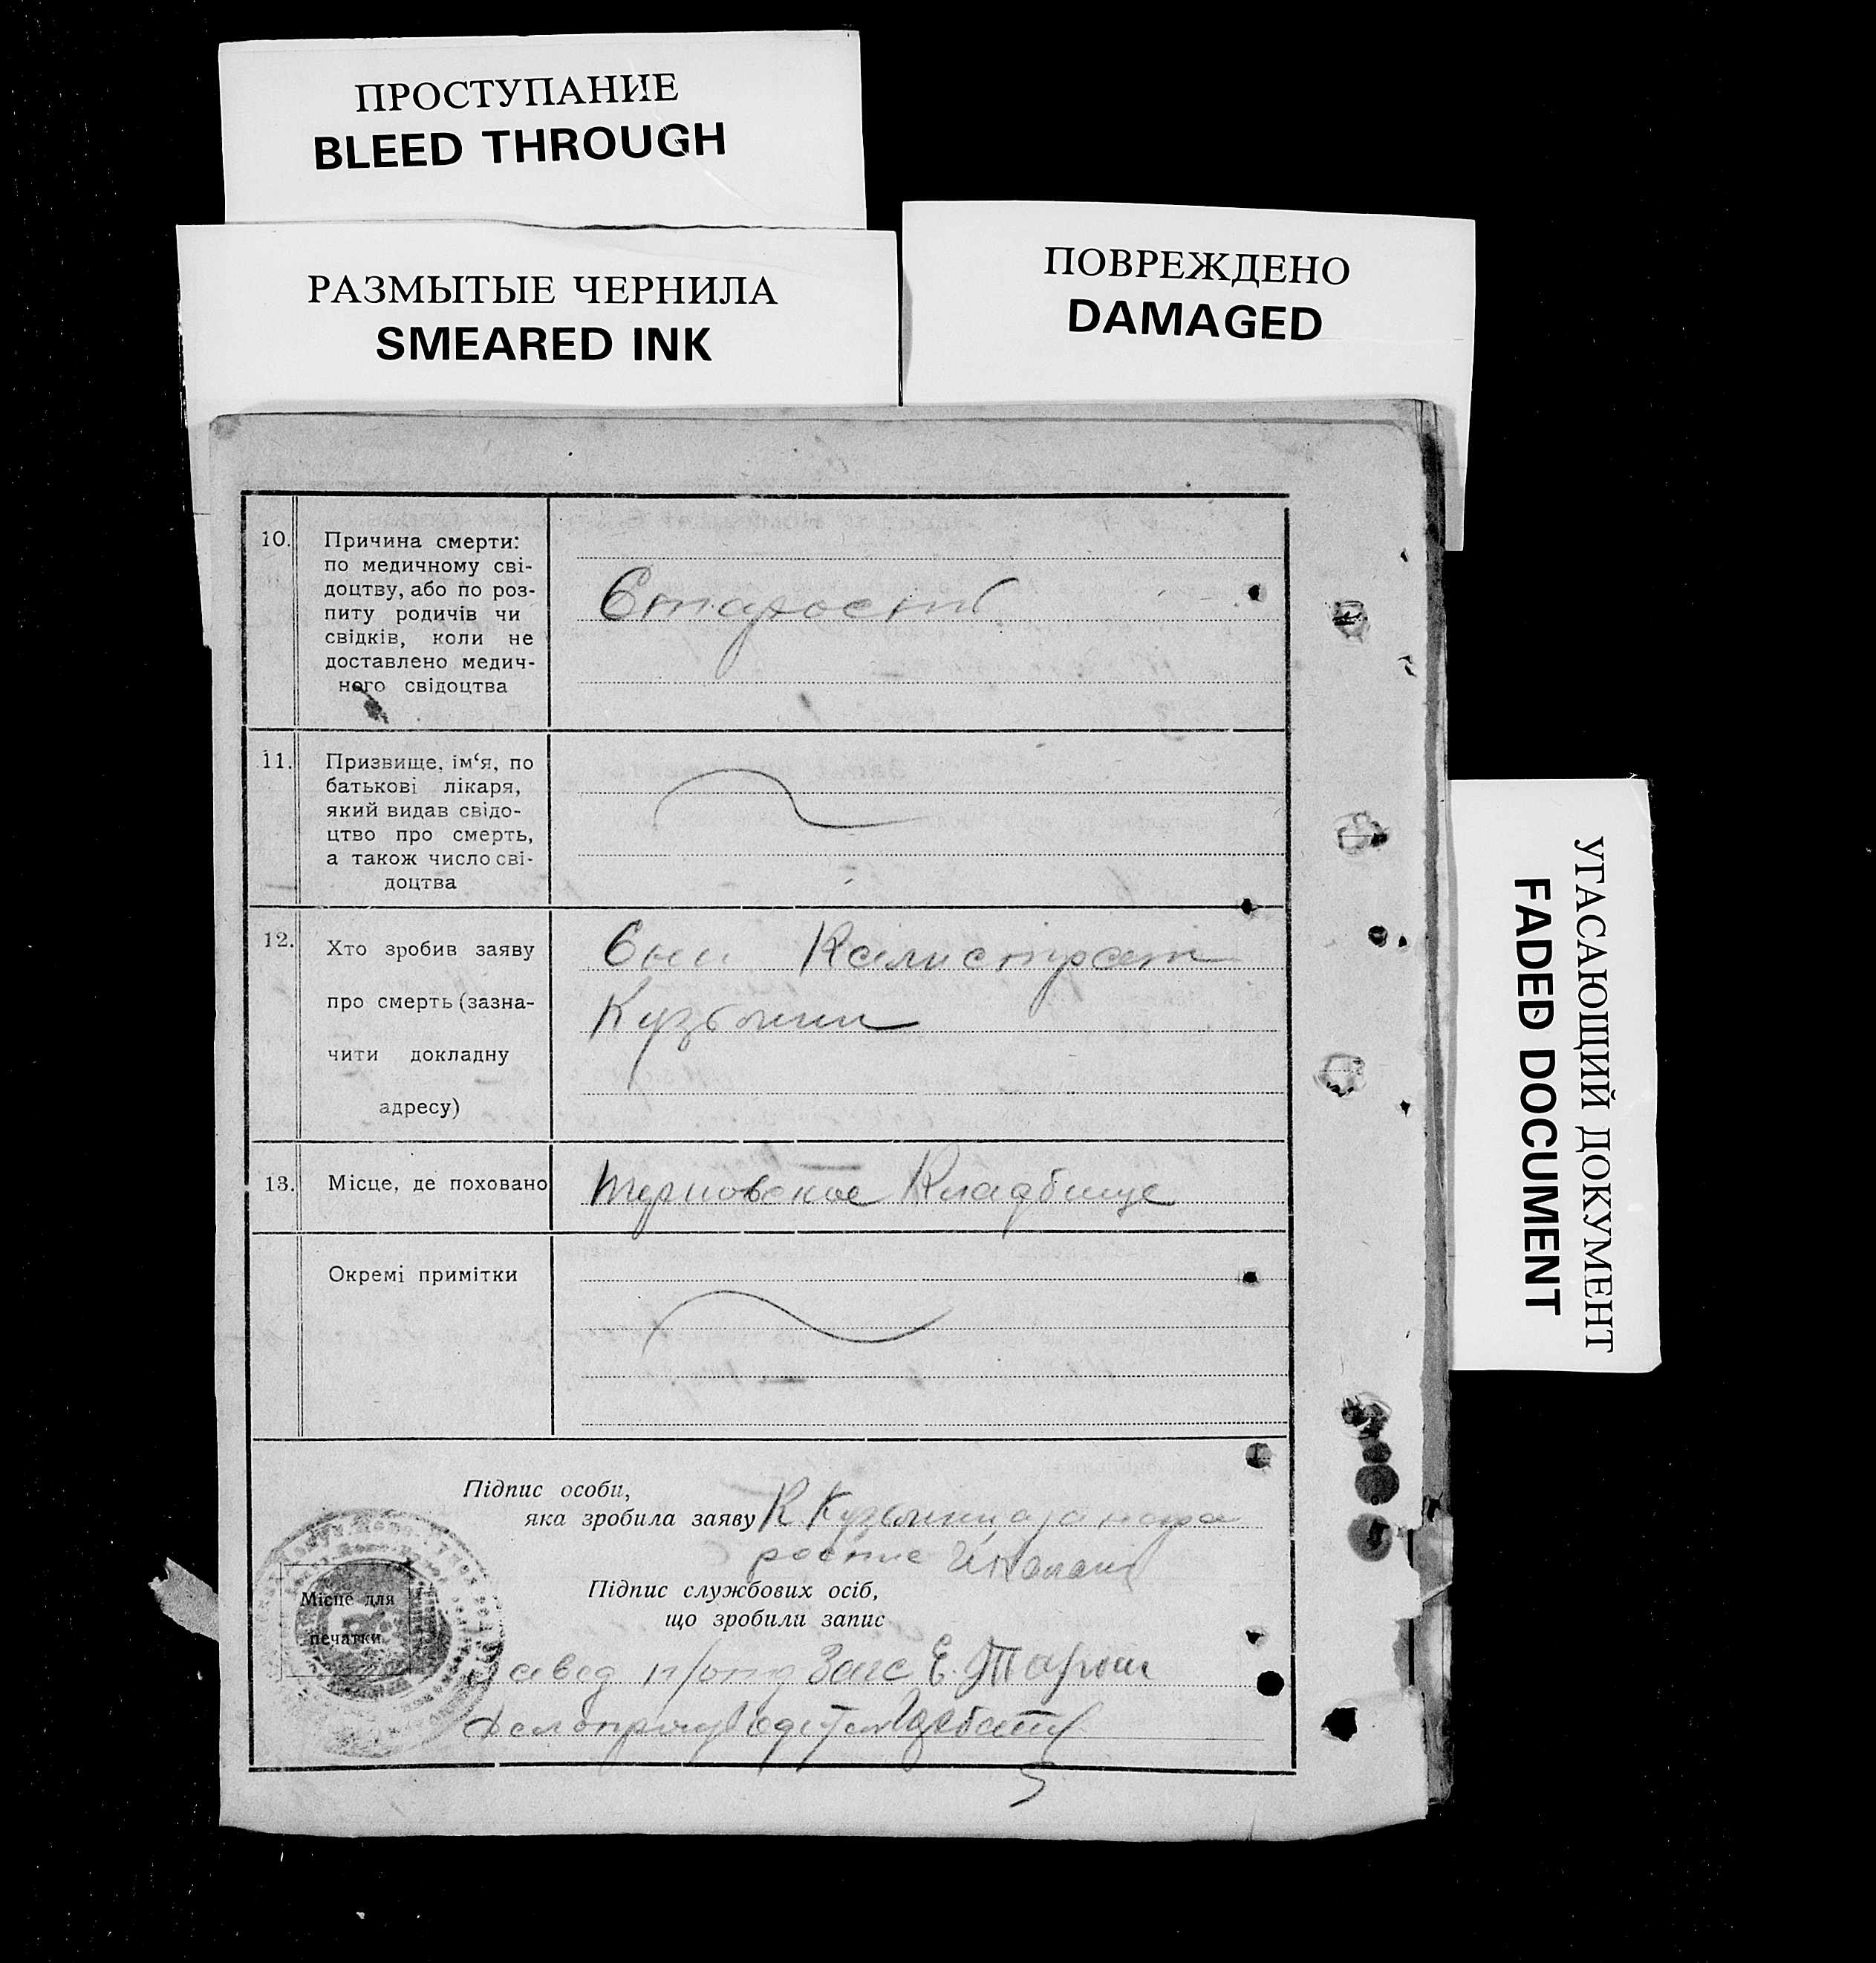 ПРОСТУПАНИЕ
BLEED THROUGH
РАЗМЫТЫЕ ЧЕРНИЛА
SMEARED INK
ПОВРЕЖДЕНО
DAMAGED
10.
Причина смерти:
по медичному сві-
доцтву, або по роз-
питу родичів чи
свідків, коли не
доставлено медич-
ного свідоцтва
Старость
11.
Призвище, ім‘я, по
батькові лікаря,
який видав свідо-
цтво про смерть,
а також число сві-
доцтва
12.
Хто зробив заяву
про смерть (зазна-
чити докладну
адресу)
Сын Калистрат
Кузьмин
13.
Місце, де поховано
Терновское Кладбище
Окремі примітки
Підпис особи,
яка зробила заяву
К Кузьмин
Підпис службових осіб,
що зробили запис
Місце для
печатки
Завед Загс Е.
УГАСАЮЩИЙ ДОКУМЕНТ
FADED DOCUMENT